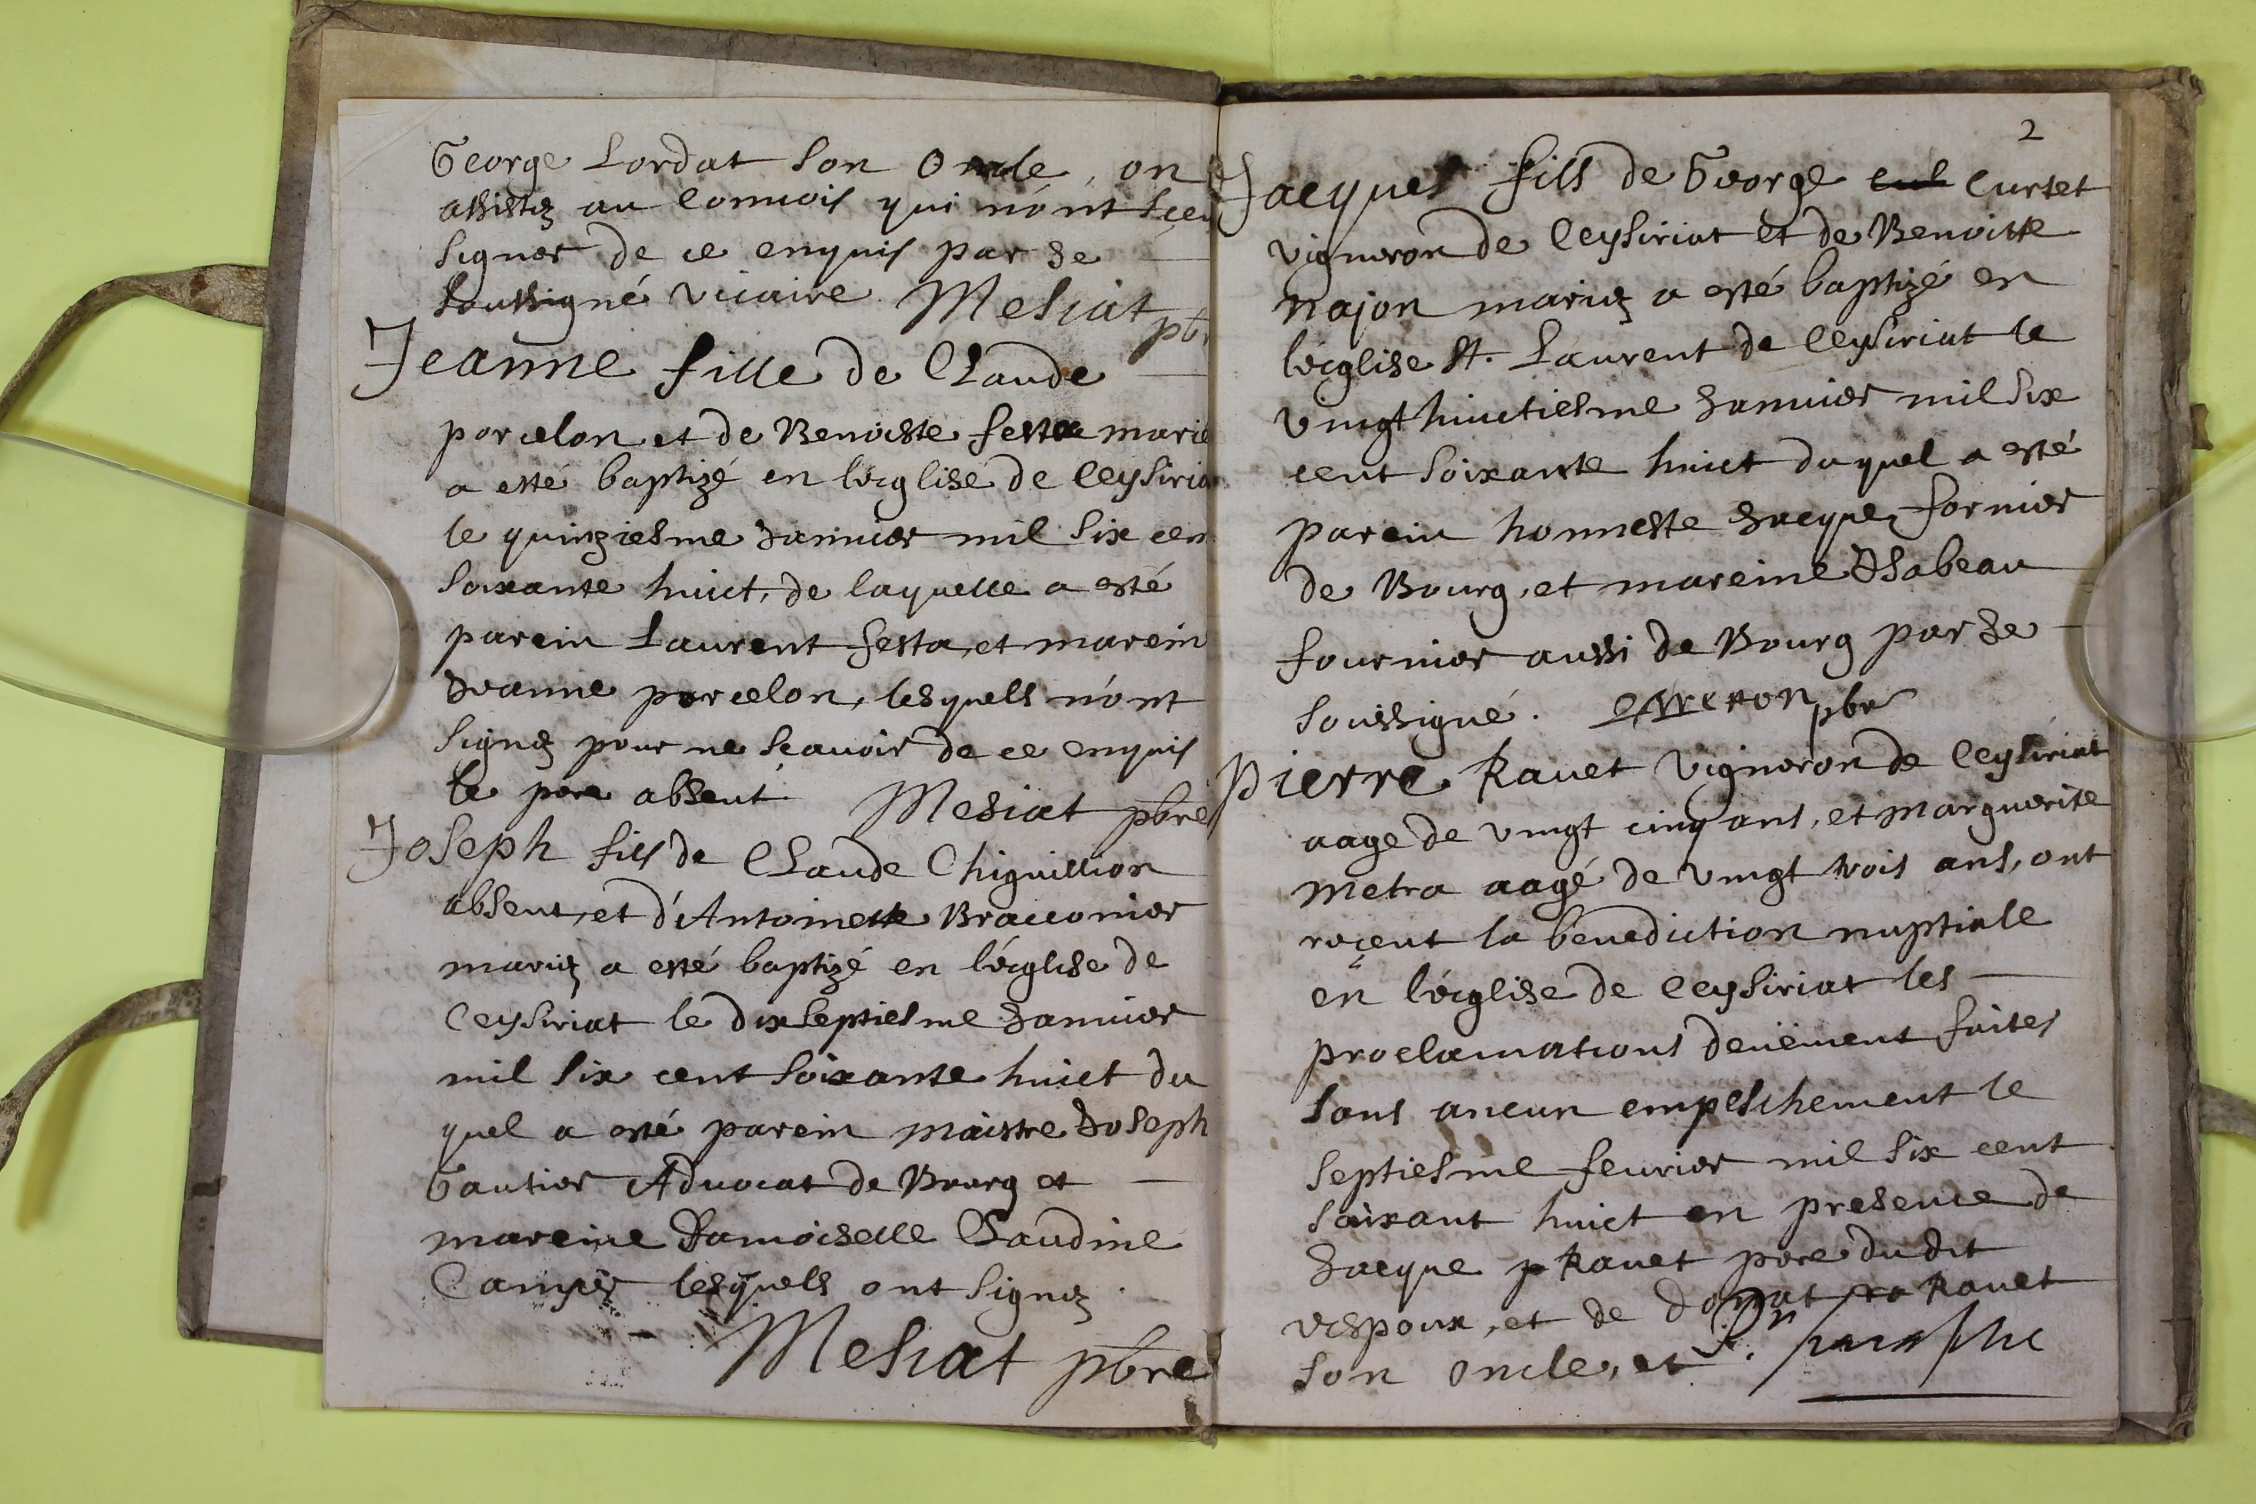 George Lordat son oncle, on
assistez au convois qui n'ont sceu
signer de ce enquis par Je
soussigné vicaire. Mesiat pbr
Jeanne fille de Claude
porcelon et de Benoiste festa marie
a esté baptizé en l'eglise de Ceysiria
le quinziesme Januier mil six cen
soixante huict, de laquelle a esté
parein Laurent festa, et marein
Jeanne porcelon, lesquels n'ont
signez pour ne scauoir de ce enquis
le pere absent. Mesiat pbre
Joseph fils de Claude Chiguillion
absent, et d'Antoinette Bracconier
mariez a esté baptizé en l'eglise de
Ceysiriat le dixseptiesme Januier
mil six cent soixante huict du
quel a esté parein maistre Joseph
Gautier Aduocat de Bourg et
mareine Damoiselle Claudine
lesquels ont signez.
Mesiat pbre
2
Jacques fils de George cul Curtet
vigneron de Ceysiriat et de Benoitte
najon mariez a esté baptizé en
l'eglise St. Laurent de Ceysiriat le
vingthuictiesme Januier mil six
cent soixante huict duquel a esté
parein honneste Jacque fornier
de Bourg, et mareine Isabeau
fournier aussi de Bourg par Je
soussigné. pbre
Pierre Rauet vigneron de Ceysiriat
aage de vingt cinq ans, et marguerite
metra aagé de vingt trois ans, ont
reçeut la benediction nuptiale
en l'eglise de Ceysiriat les
proclamations deüement faites
sans aucun empeschement le
septiesme feurier mil six cent
soixant huict en presence de
Jacque p Rauet pere dudit
espoux, et de donat ra Rauet
son oncle, et